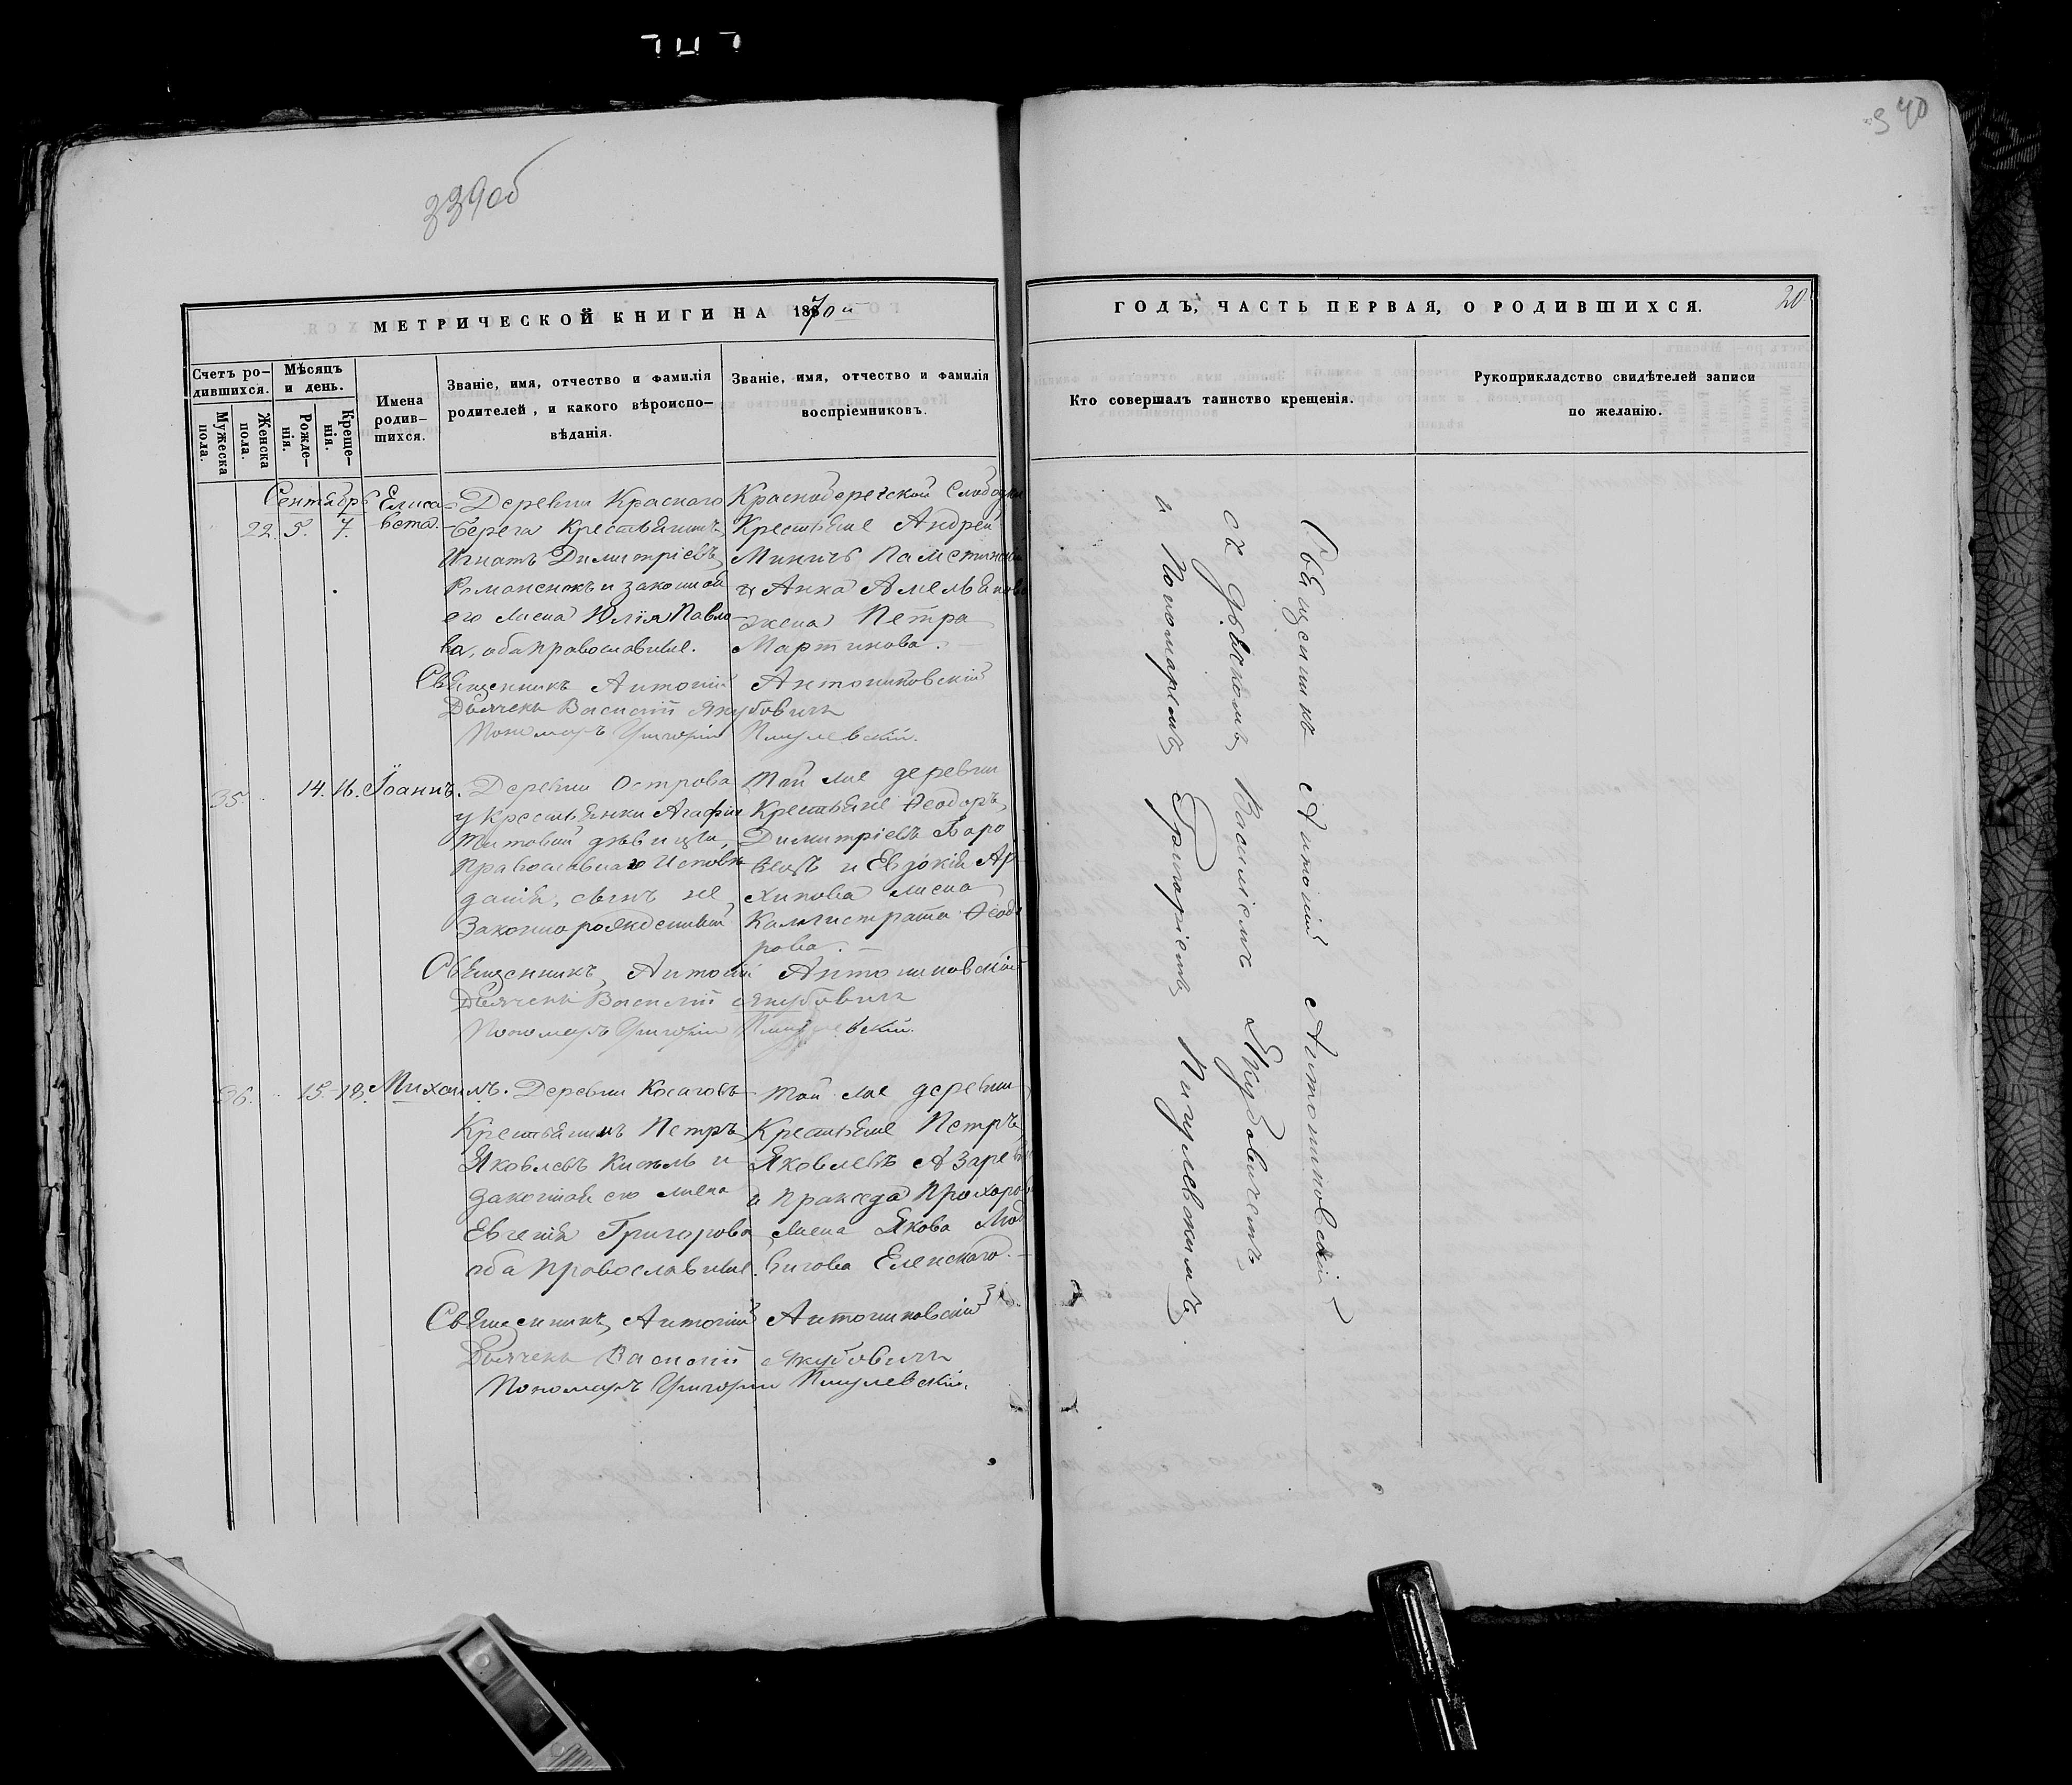 339об
340
МЕТРИЧЕСКОЙ КНИГИ НА 1870й
ГОДЪ, ЧАСТЬ ПЕРВАЯ, О РОДИВШИХСЯ.
20
Счетъ ро-
дившихся.
Мужеска
пола.
Женска
пола.
Мѣсяцъ
и день.
Рожде-
нія.
Креще-
нія.
Имена
родив-
шихся.
Званіе, имя, отчество и фамилія
родителей, и какого вѣроиспо-
вѣданія.
Званіе, имя, отчество и фамилія
воспріемниковъ.
Кто совершалъ таинство крещенія.
Рукоприкладство свидѣтелей записи
по желанію.
Сентябрь
22. 5. 7.
Елиса-
вета.
Деревни Краснаго
Берега Крестьянинъ
Игнатъ Димитріевъ
и законная
его жена Юлія Павло-
ва, оба православные.
Слободки
Крестьяне Андрей
Миничъ
и Анна Амельянова
жена Петра
Мартинова.
Священникъ Антоній Антониковскій
Дьячекъ Василій Якубовичъ
Пономарь Григорій Пигулевскій.
35. 14. 16. Іоаннъ.
Деревни Острова
у Крестьянки Агафіи
Титовой дѣвицы,
Православнаго Исповѣ-
данія, сынъ не
законнорожденный
Той же деревни
Крестьяне Ѳеодоръ
Димитріевъ
и Евдокія Ар-
хипова жена
Каллистрата Ѳеодо-
рова.
Священникъ Антоній Антониковскій
Дьячекъ Василій Якубовичъ
Пономарь Григорій Пигулевскій.
36. 15. 18. Михаилъ.
Деревни Косаговъ
Крестьянинъ Петръ
Яковлевъ Кисель и
законная его жена
Евгенія Григорьева
оба православные.
Той же деревни
Крестьяне Петръ
Яковлевъ
и Пракседа Прохорова
жена Якова
Еленскаго.
Священникъ Антоній Антониковскій
Дьячекъ Василій Якубовичъ
Пономарь Григорій Пигулевскій.
Священникъ Антоній Антониковскій
съ Дьячкомъ Василіемъ Якубовичемъ
и Пономаремъ Григоріемъ Пигулевскимъ.